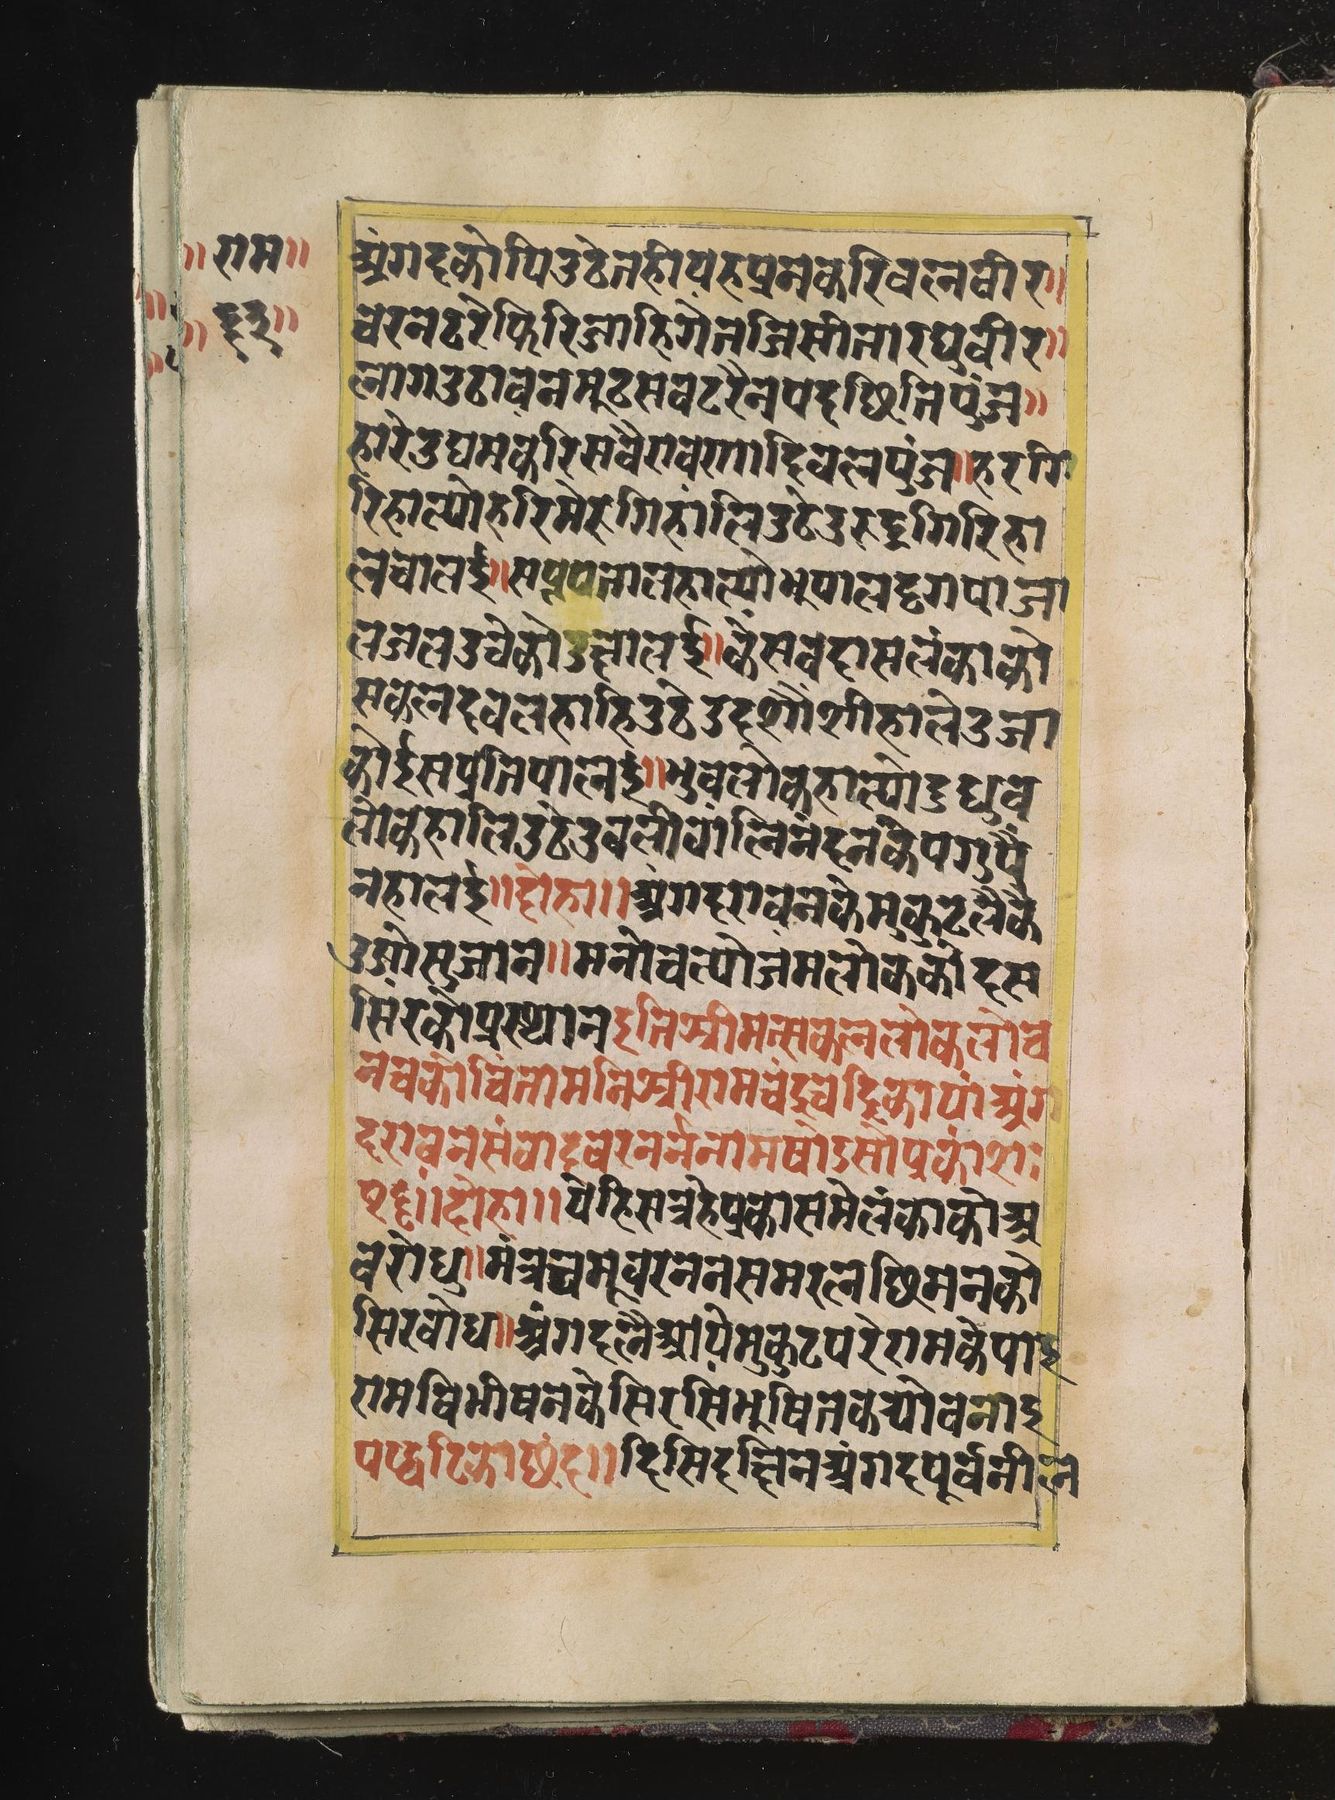 ॥राम॥
॥६३॥
अंगदकोपिउठेतहीयहप्रनकरिवलवीर॥
चरनटरेफिरिजाहिगेतजिसीतारघुवीर॥
लागउठावनमूटसवटरैनपदछितिपुंज॥
हारेउद्यमकरिसवैरावणादिवलपुंज॥हरगि
रिहाल्योहरिमेरुगिहालिउठेउरुद्रगिरिहा
लचालई॥सप्तपतालहाल्योभूपालदृगपाजा
लजलउचेकोउलालई॥केसवदासलंकाको
सकेलदवलहाहिउठेउदशौशीहालेउजा
कोईसप्रतिपालई॥भुवलोकहाल्योउध्रुव
लोकहालिउठेउवलीवालिनंदनकेपगुपैं
नहालई॥दोहा॥अंगदरावनकेमुकुटलैकै
उडोसुजान॥मनोचल्योजमलोककोदस
सिरकोप्रस्थानइतिश्रीमत्सकललोकलोच
नचकोचिंतामनिश्रीरामचंद्रचंद्रिकायांअंग
दरावनसंवादवरनर्ननामषोडसोप्रकाशः
१६॥दोहा॥येहिसत्रहेप्रकासमेलंकाकोअ
वरोधु॥मंत्रचमूवरननसमरलछिमनको
सिरवोध॥अंगदलैआपेमुकुटपरेरामकेपाइ
रामविभीषनकेसिरसिंभूषितकर्योवनाइ
पध्घटिकाछंद॥दिसिदछिनअंगदपूर्वनील